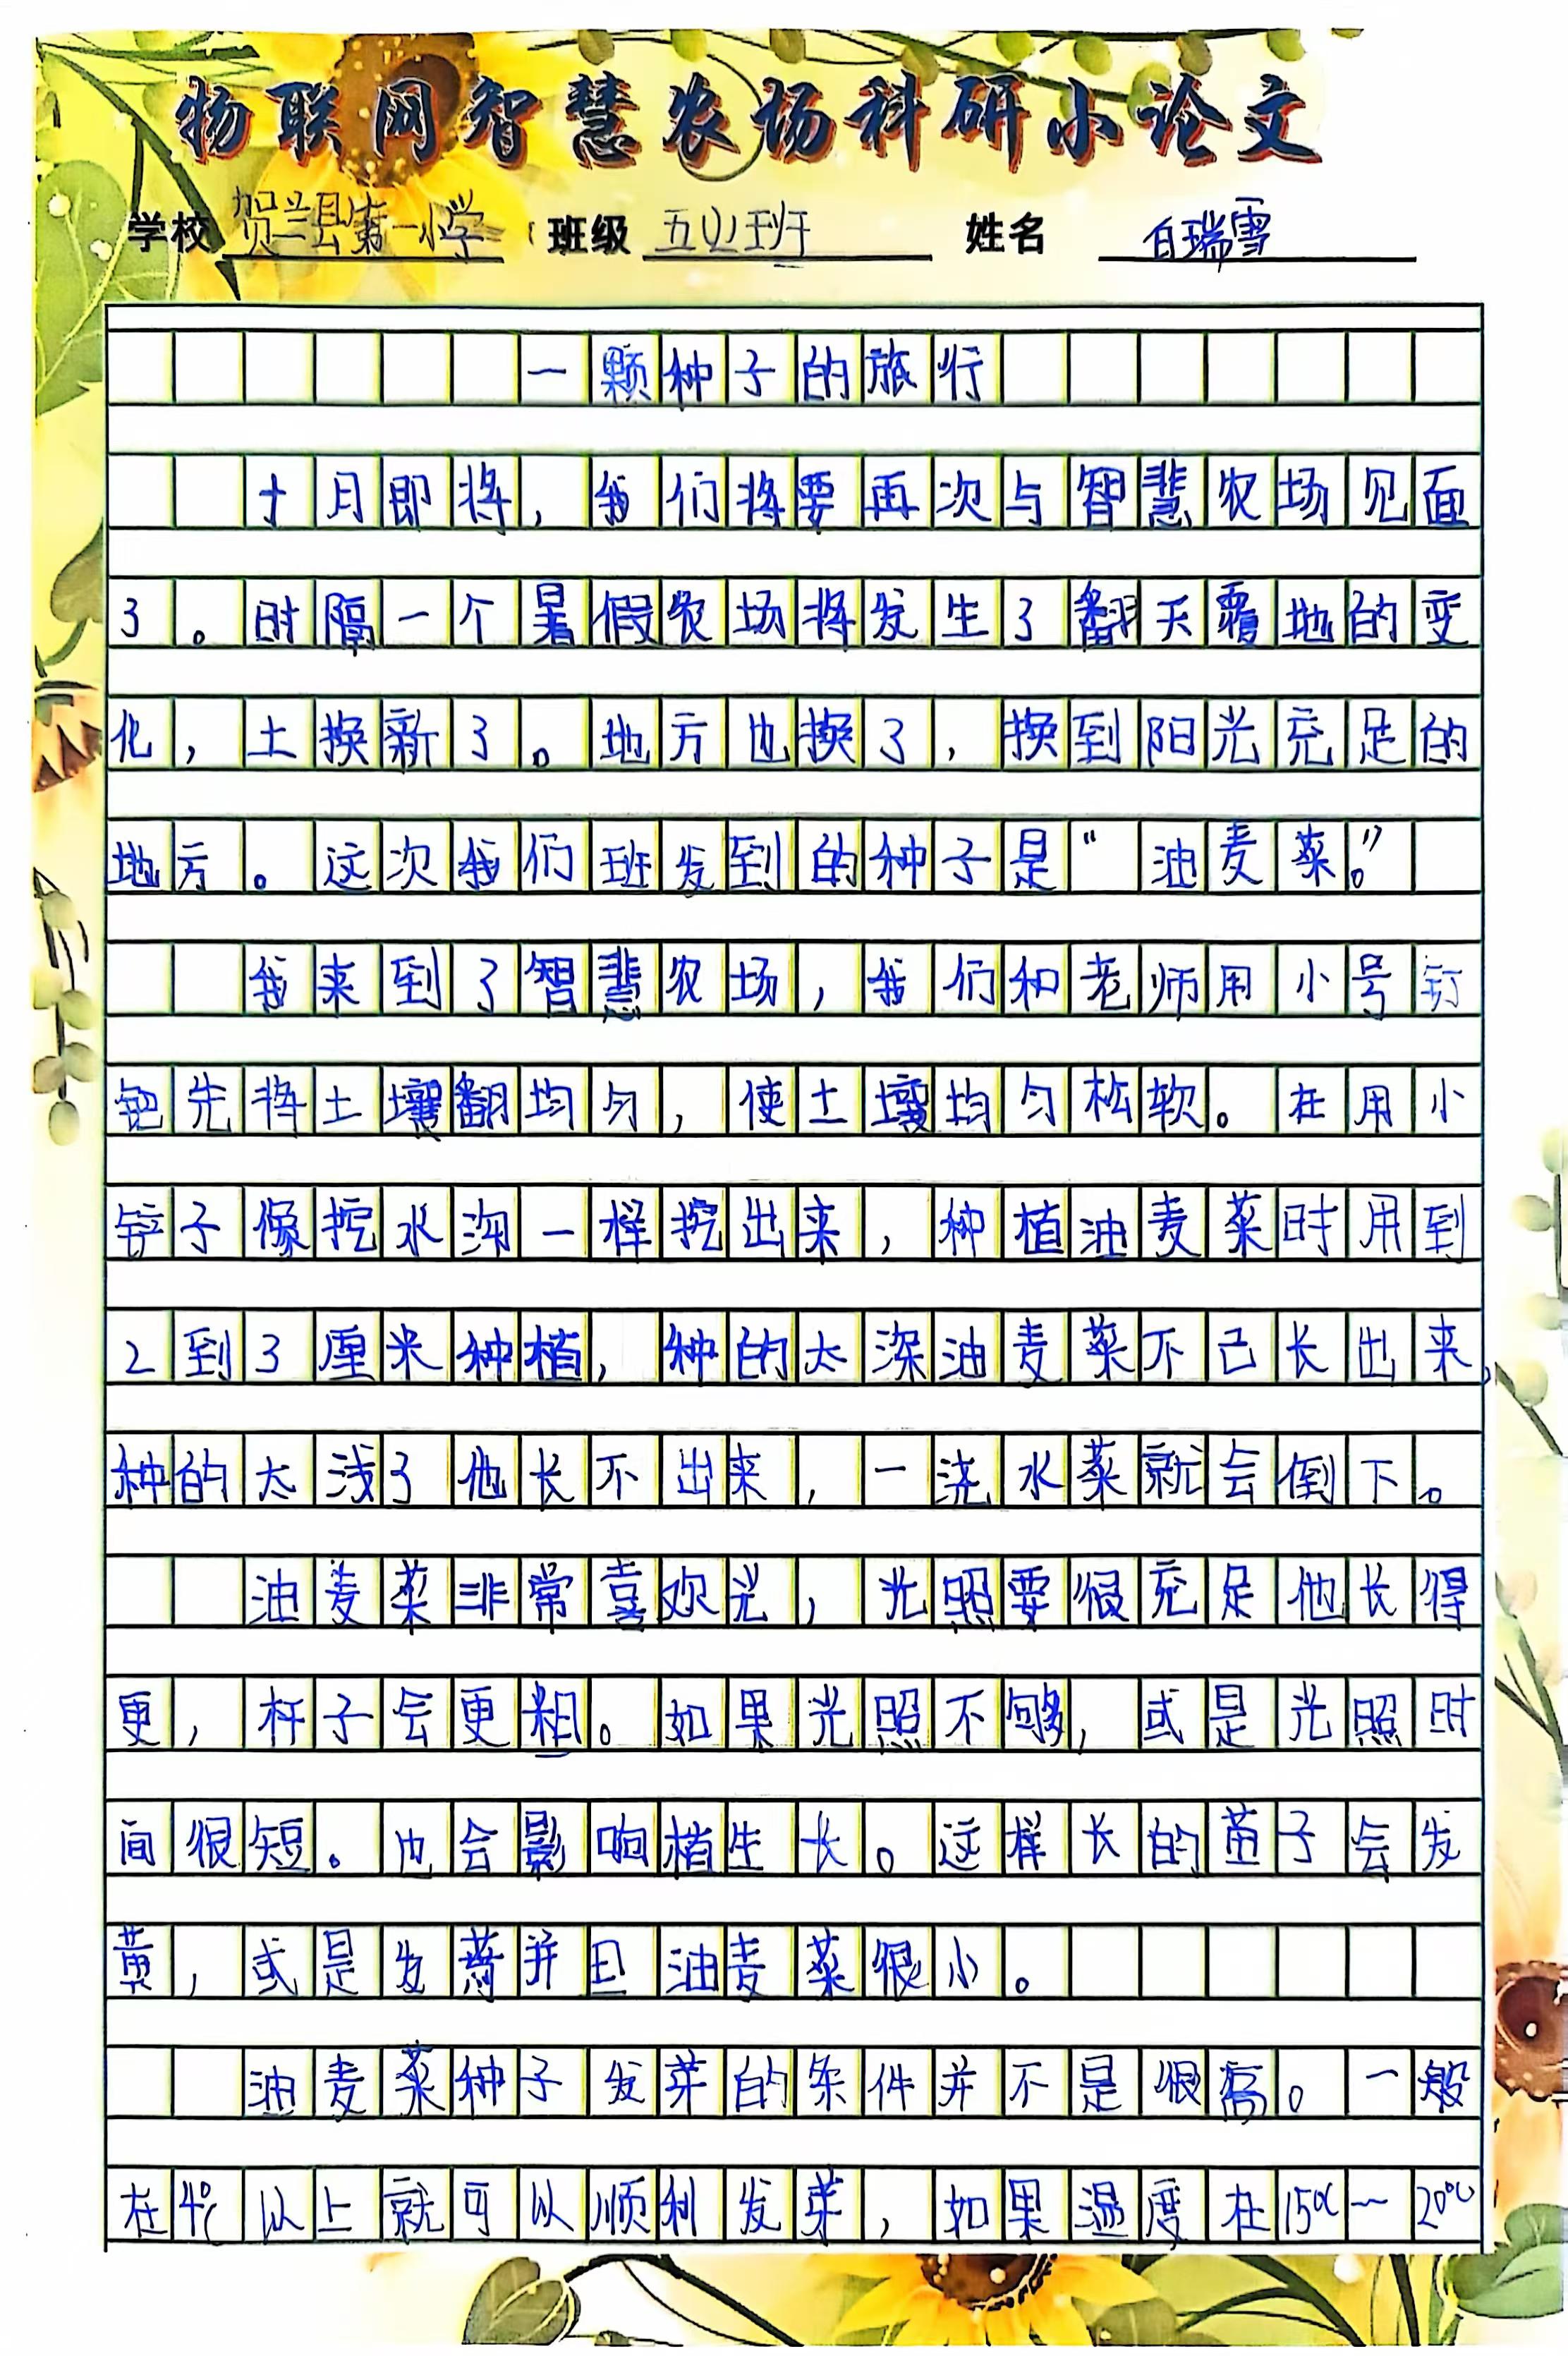 物联网智慧农场科研小论文
学校 贺兰县第一小学 班级 五(4)班 姓名 白瑞雪
一颗种子的旅行
十月即将,我们将要再次与智慧农场见面
了。时隔一个暑假农场将发生了翻天覆地的变
化,土换新了。地方也换了,换到阳光充足的
地方。这次我们班发到的种子是“油麦菜。”
我来到了智慧农场,我们和老师用小号钉
钯先将土壤翻均匀,使土壤均匀松软。在用小
铲子像挖水沟一样挖出来,种植油麦菜时用到
2到3厘米种植,种的太深油麦菜不己长出来,
种的太浅了他长不出来,一浇水菜就会倒下。
油麦菜非常喜欢光,光照要很充足他长得
更,杆子会更粗。如果光照不够,或是光照时
间很短。也会影响植生长。这样长的苗子会发
黄,或是发蔫并且油麦菜很小。
油麦菜种子发芽的条件并不是很高。一般
在4℃以上就可以顺利发芽,如果温度在15℃一20℃